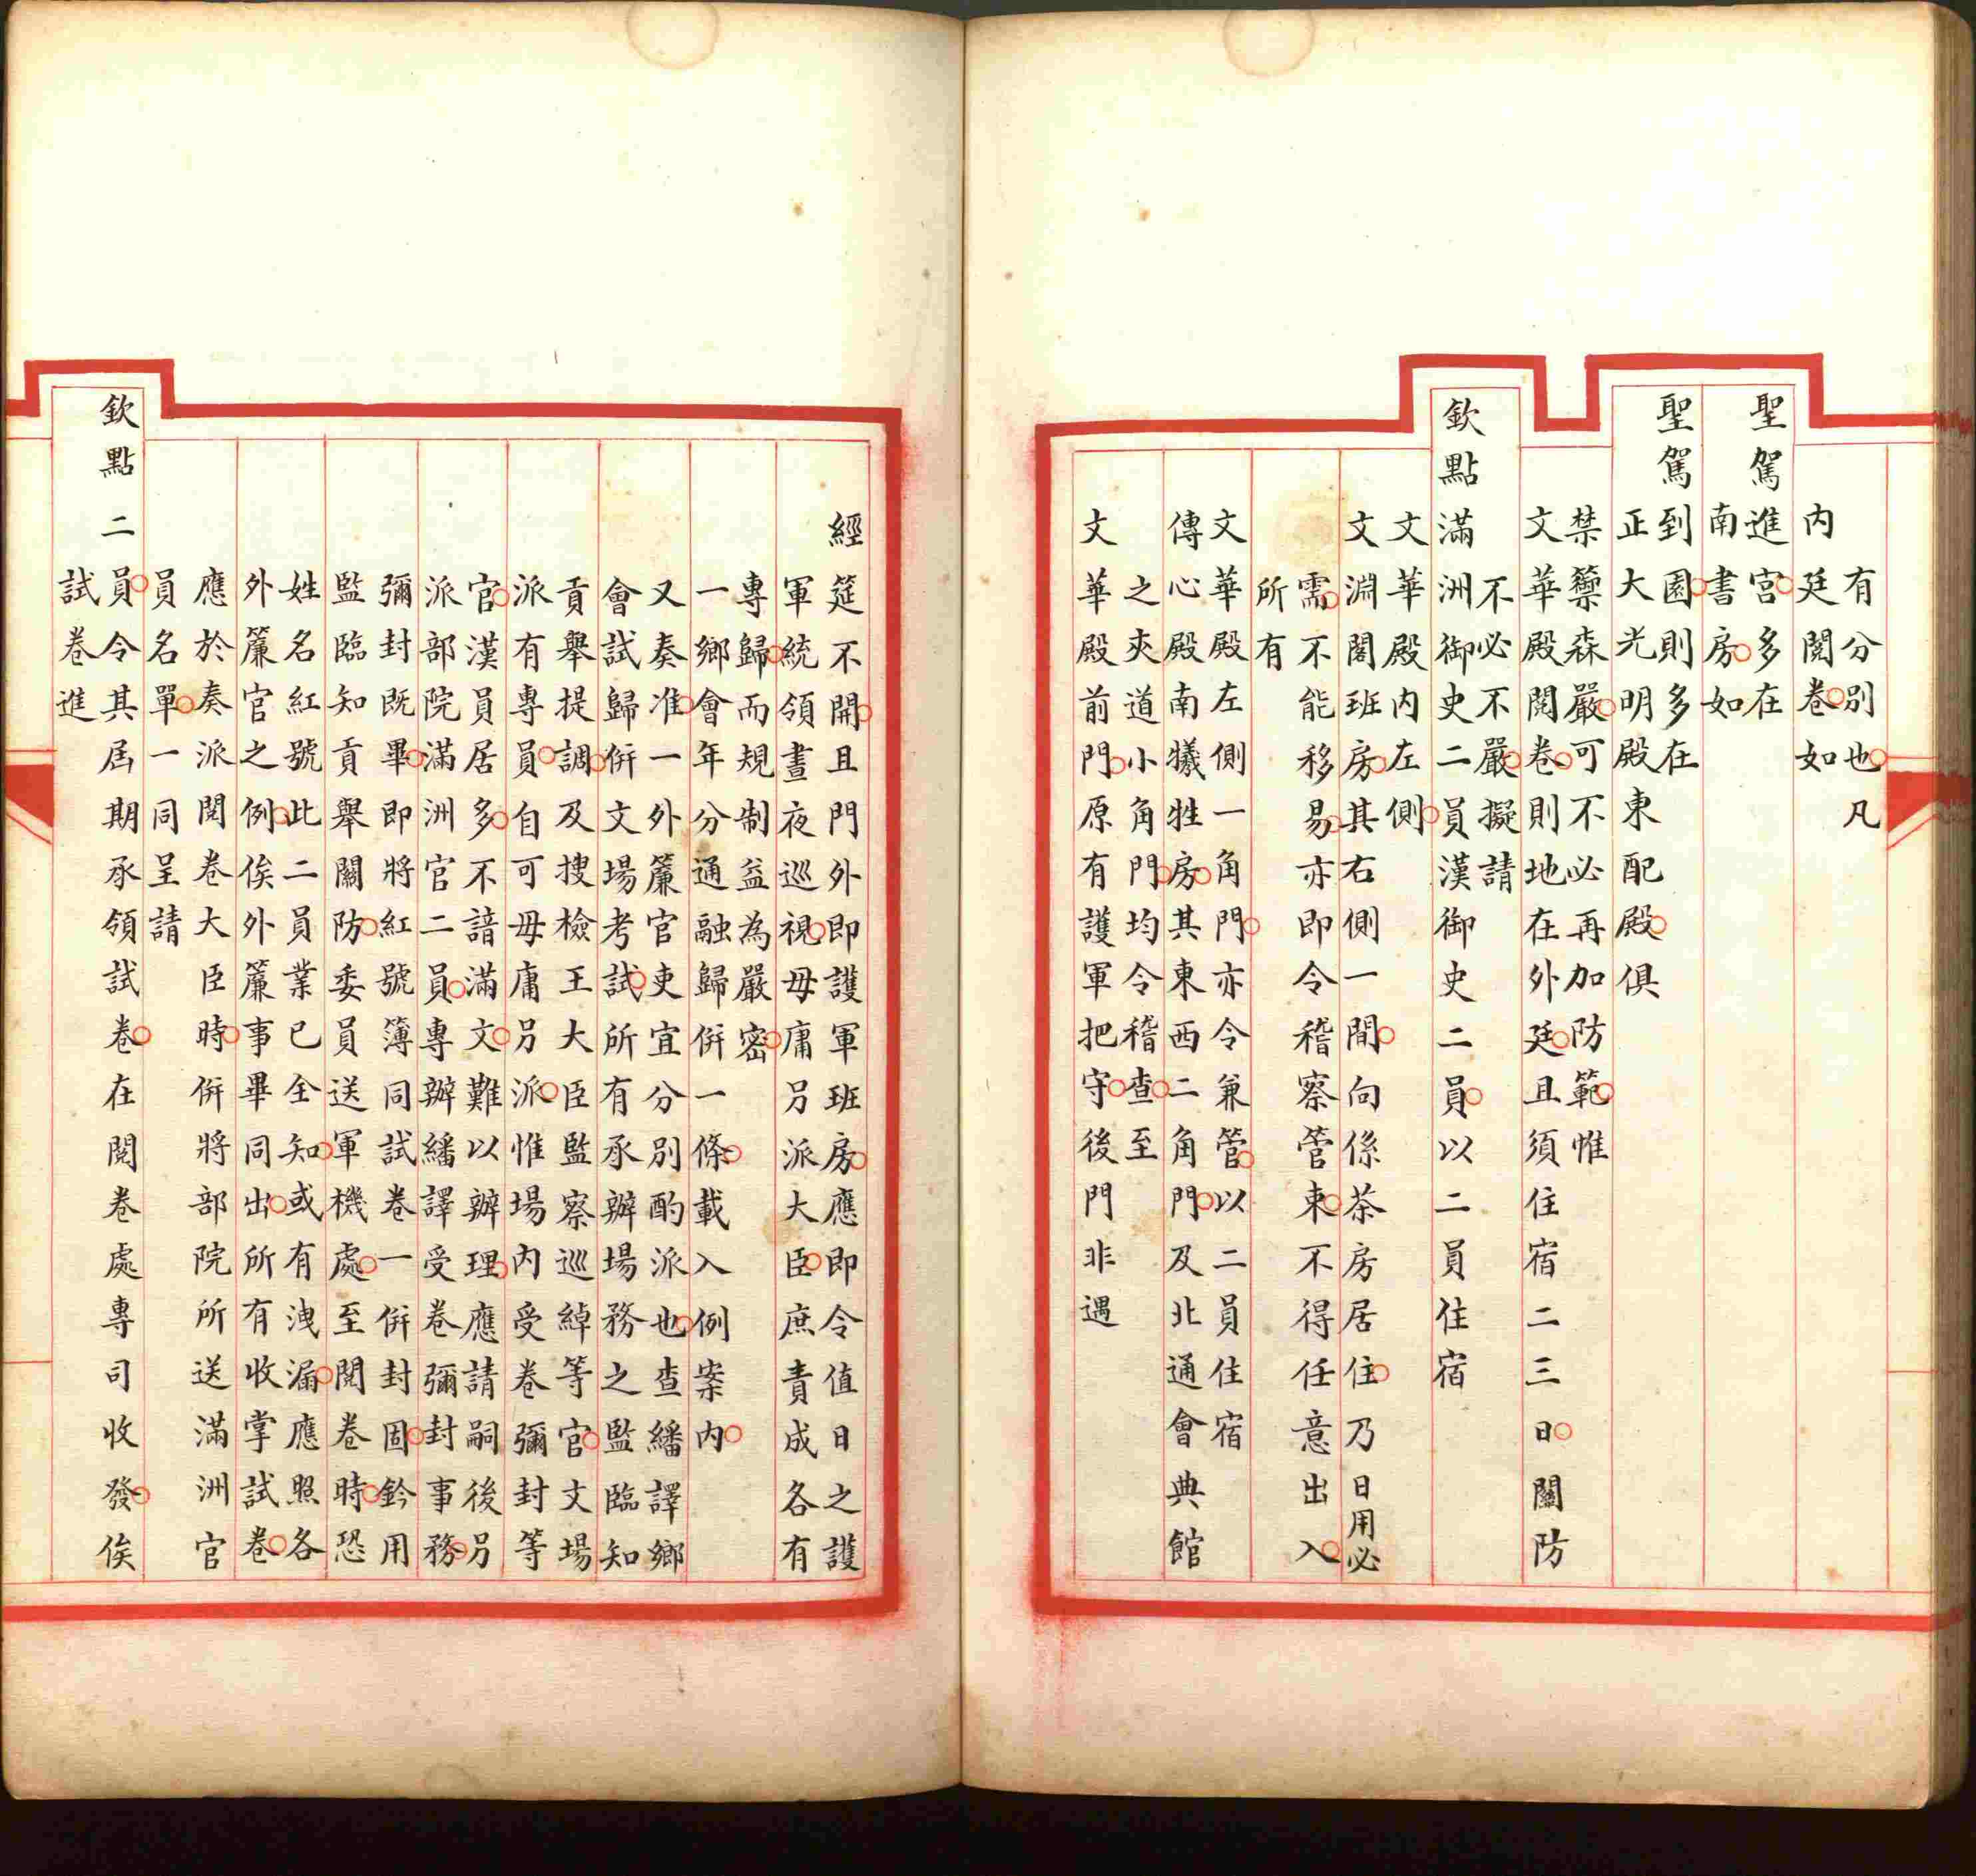 有分別也凡
内廷閱卷如
聖駕進宮多在
南書房如
聖駕到園則多在
正大光明殿東配殿俱
禁籞森嚴可不必再加防範惟
文華殿閱卷則地在外廷且須住宿二三日關防
不必不嚴擬請
欽點滿洲御史二員漢御史二員以二員住宿
文華殿内左側
文淵閣班房其右側一間向係茶房居住乃日用必
需不能移易亦即令稽察管束不得任意出入
所有
文華殿左側一角門亦令兼管以二員住宿
傳心殿南犧牲房其東西二角門及北通會典館
之夾道小角門均令稽查至
文華殿前門原有護軍把守後門非遇
經筵不開且門外即護軍班房應即令值日之護
軍統領晝夜巡視毋庸另派大臣庶責成各有
專歸而規制益為嚴密
一鄉會年分通融歸併一條載入例案内
又奏准一外簾官吏宜分別酌派也查繙譯鄉
會試歸併文場考試所有承辦場務之監臨知
貢舉提調及搜檢王大臣監察巡綽等官文場
派有專員自可毋庸另派惟場内受卷彌封等
官漢員居多不諳滿文難以辦理應請嗣後另
派部院滿洲官二員專辦繙譯受卷彌封事務
彌封既畢即將紅號簿同試卷一併封固鈐用
監臨知貢舉關防委員送軍機處至閱卷時恐
姓名紅號此二員業已全知或有洩漏應照各
外簾官之例俟外簾事畢同出所有收掌試卷
應於奏派閱卷大臣時併將部院所送滿洲官
員名單一同呈請
欽點二員令其屆期承領試卷在閱卷處專司收發俟
試卷進